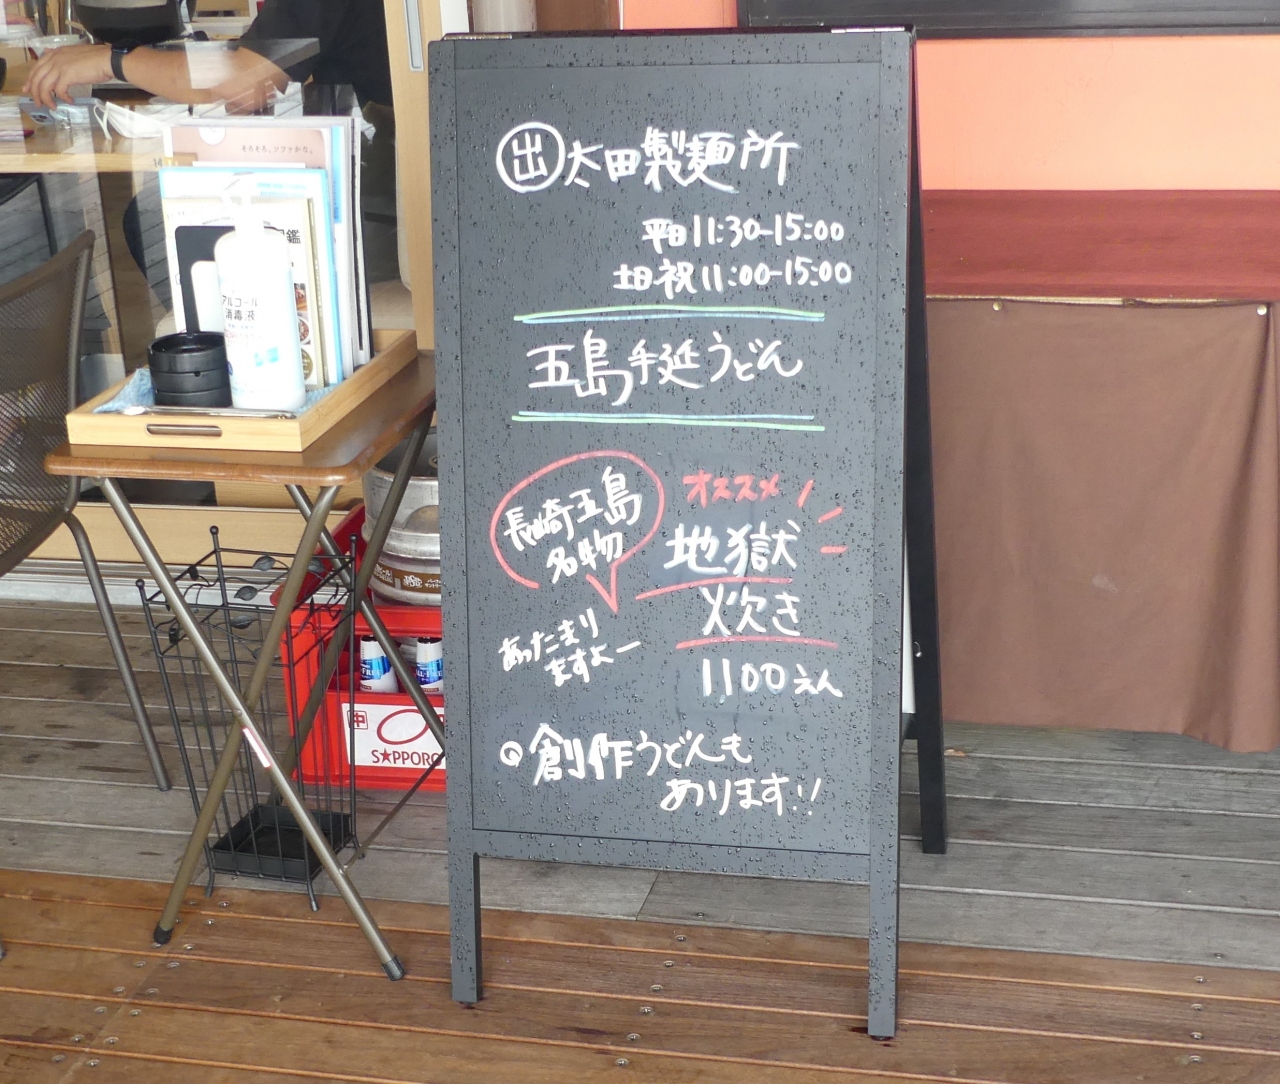 出 太田製麺所
平日11:30-15:00
土日祝11:00-15:00
五島手延うどん
長崎五島
名物
オススメ
地獄
炊き
1100えん
あったまり
ますよー
創作うどんも
あります!!
そろそろ、ツヅァかな。
アルコール
消毒液
中
S★PPORO